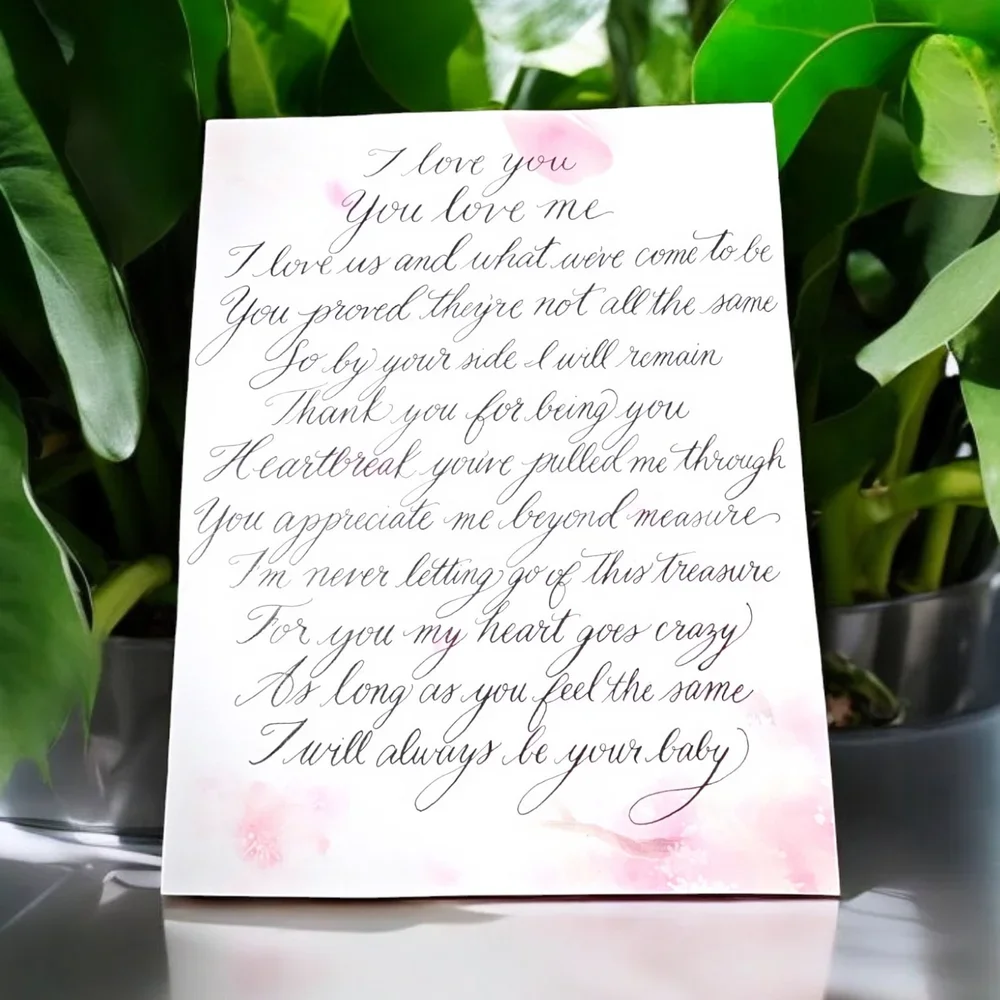 I love you
You love me
I love us and what we've come to be
You proved they're not all the same
So by your side I will remain
Thank you for being you
Heartbreak you've pulled me through
You appreciate me beyond measure
I'm never letting go of this treasure
For you my heart goes crazy
As long as you feel the same
I will always be your baby